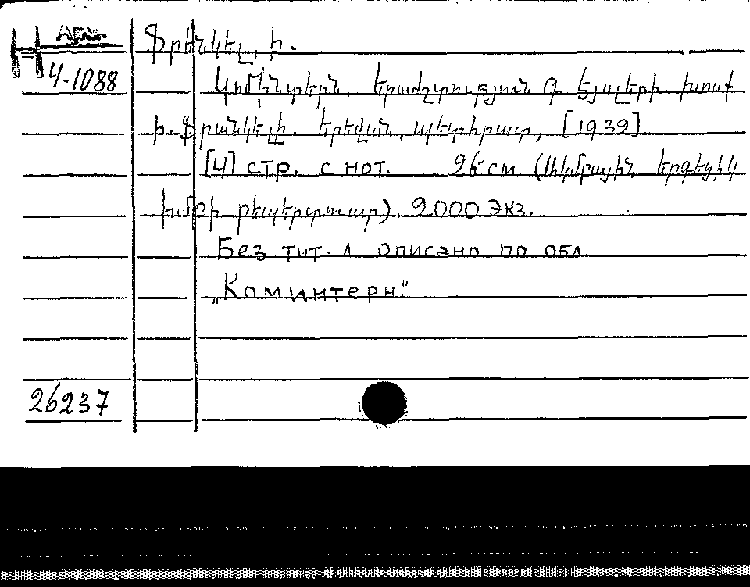 Арм.
Н 4-1088
Ֆրենկել, Ի.
Կոմինտերն. Երաժշտություն Գ Էյսլերի խոսք
Ի. Ֆրանկելի. Երեվան, պետհրատ, [1939]
[4] стр. с нот. 26 см (Խմբային երգեցիկ
խմբի ռեպերտուար) 2000 экз.
Без тит. л описано по обл
„Коминтерн."
26237